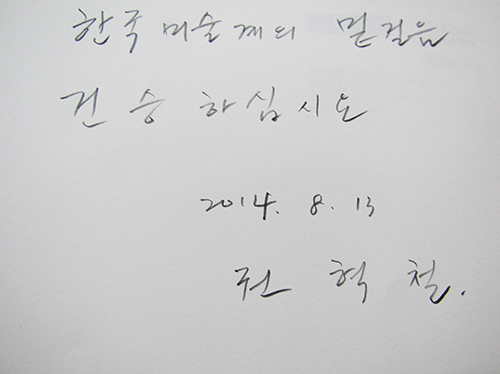 한국 미술계의 먼 걸음
건승 하십시오
2014. 8. 13
권 혁 철.